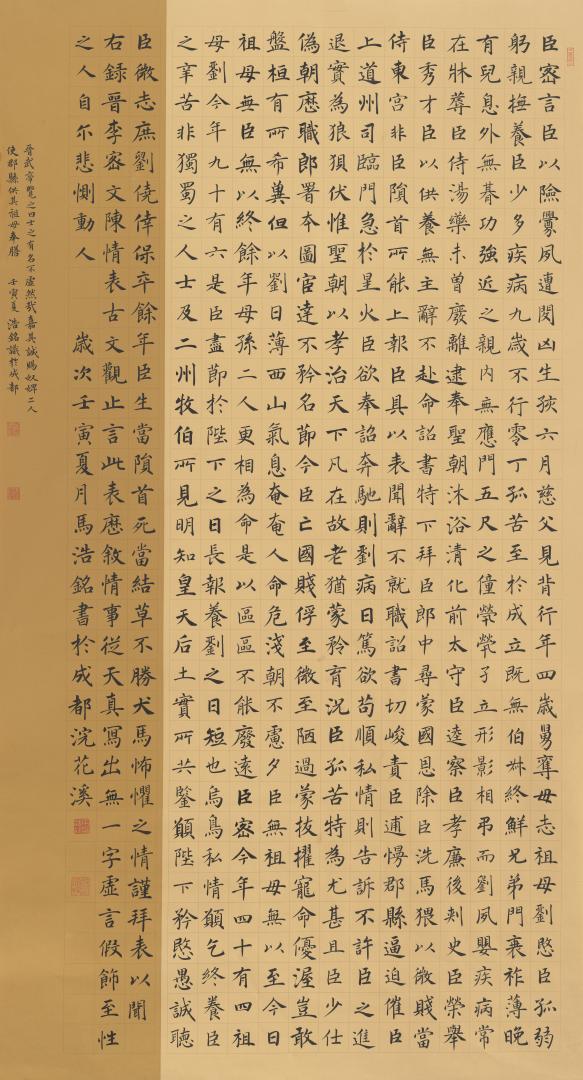 臣密言臣以險釁夙遭閔凶生孩六月慈父見背行年四歲舅奪母志祖母劉愍臣孤弱
躬親撫養臣少多疾病九歲不行零丁孤苦至於成立既無伯叔終鮮兄弟門衰祚薄晚
有兒息外無朞功強近之親內無應門五尺之僮煢煢孑立形影相弔而劉夙嬰疾病常
在牀蓐臣侍湯藥未曾廢離逮奉聖朝沐浴清化前太守臣逵察臣孝廉後刺史臣榮舉
臣秀才臣以供養無主辭不赴命詔書特下拜臣郎中尋蒙國恩除臣洗馬猥以微賤當
侍東宮非臣隕首所能上報臣具以表聞辭不就職詔書切峻責臣逋慢郡縣逼迫催臣
上道州司臨門急於星火臣欲奉詔奔馳則劉病日篤欲苟順私情則告訴不許臣之進
退實為狼狽伏惟聖朝以孝治天下凡在故老猶蒙矜育況臣孤苦特為尤甚且臣少仕
偽朝歷職郎署本圖宦達不矜名節今臣亡國賤俘至微至陋過蒙拔擢寵命優渥豈敢
盤桓有所希冀但以劉日薄西山氣息奄奄人命危淺朝不慮夕臣無祖母無以至今日
祖母無臣無以終餘年母孫二人更相為命是以區區不能廢遠臣密今年四十有四祖
母劉今年九十有六是臣盡節於陛下之日長報養劉之日短也烏鳥私情願乞終養臣
之辛苦非獨蜀之人士及二州牧伯所見明知皇天后土實所共鑒願陛下矜愍愚誠聽
臣微志庶劉僥倖保卒餘年臣生當隕首死當結草不勝犬馬怖懼之情謹拜表以聞
右錄晉李密文陳情表古文觀止言此表歷敘情事從天真寫出無一字虛言假飾至性
之人自尔悲惻動人 歲次壬寅夏月馬浩銘書於成都浣花溪
晉武帝覽之曰士之有名不虛然哉嘉其誠賜奴婢二人
使郡縣供其祖母奉膳 壬寅夏浩銘識於成都